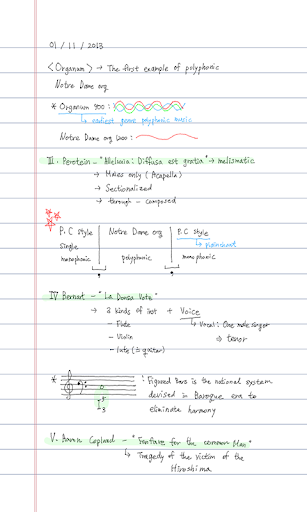 01 / 11 / 2013
<Organum> → The first example of polyphonic
Notre Dame org
* Organum 900 :
↳ earliest genre polyphonic music
Notre Dame org 1200 :
III. Perotein - "Alleluia: Diffusa est gratia" → melismatic
→ Males only (Acapella)
→ Sectionalized
→ through - composed
P.C style | Notre Dame org | P.C style
single ↳ plainchant
monophonic polyphonic monophonic
IV Bernart - "La Dousa Vota"
→ 3 kinds of inst + Voice
- Flute ↳ Vocal: One male singer
- Violin ⇒ tenor
- Lute (≒ guitar)
* : Figured Bars is the national system
devised in Baroque era to
eliminate harmony
5
3
V. Aaron Copland - "Fanfare for the common Man"
↳ Tragedy of the victim of the
Hiroshima